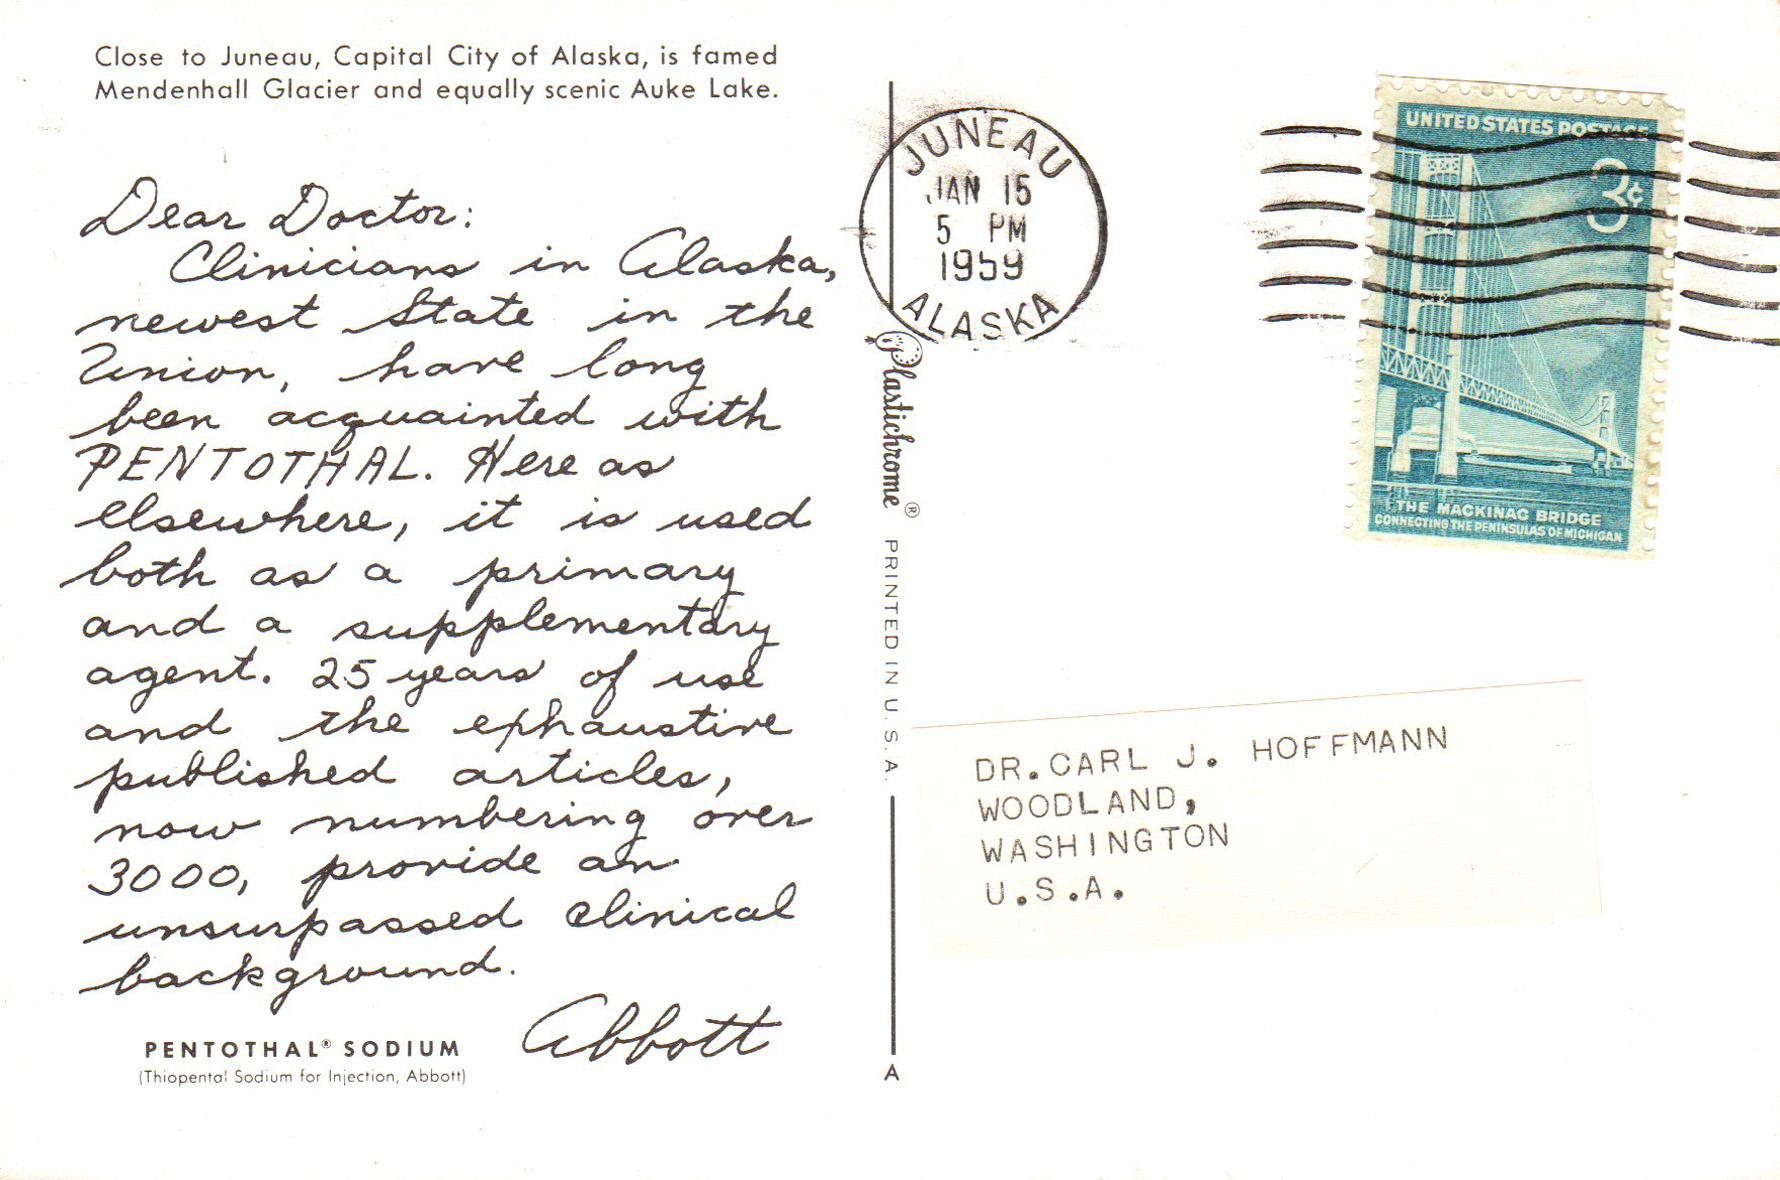 Close to Juneau, Capital City of Alaska, is famed
Mendenhall Glacier and equally scenic Auke Lake.
Dear Doctor:
Clinicians in Alaska,
newest State in the
Union, have long
been acquainted with
PENTOTHAL. Here as
elsewhere, it is used
both as a primary
and a supplementary
agent. 25 years of use
and the exhaustive
published articles,
now numbering over
3000, provide an
unsurpassed clinical
background.
Abbott
PENTOTHAL® SODIUM
(Thiopental Sodium for Injection, Abbott)
JUNEAU
JAN 15
5 PM
1959
ALASKA
Plastichrome ® PRINTED IN U. S. A.
A
UNITED STATES POSTAGE
3¢
THE MACKINAC BRIDGE
CONNECTING THE PENINSULAS OF MICHIGAN
DR. CARL J. HOFFMANN
WOODLAND,
WASHINGTON
U.S.A.